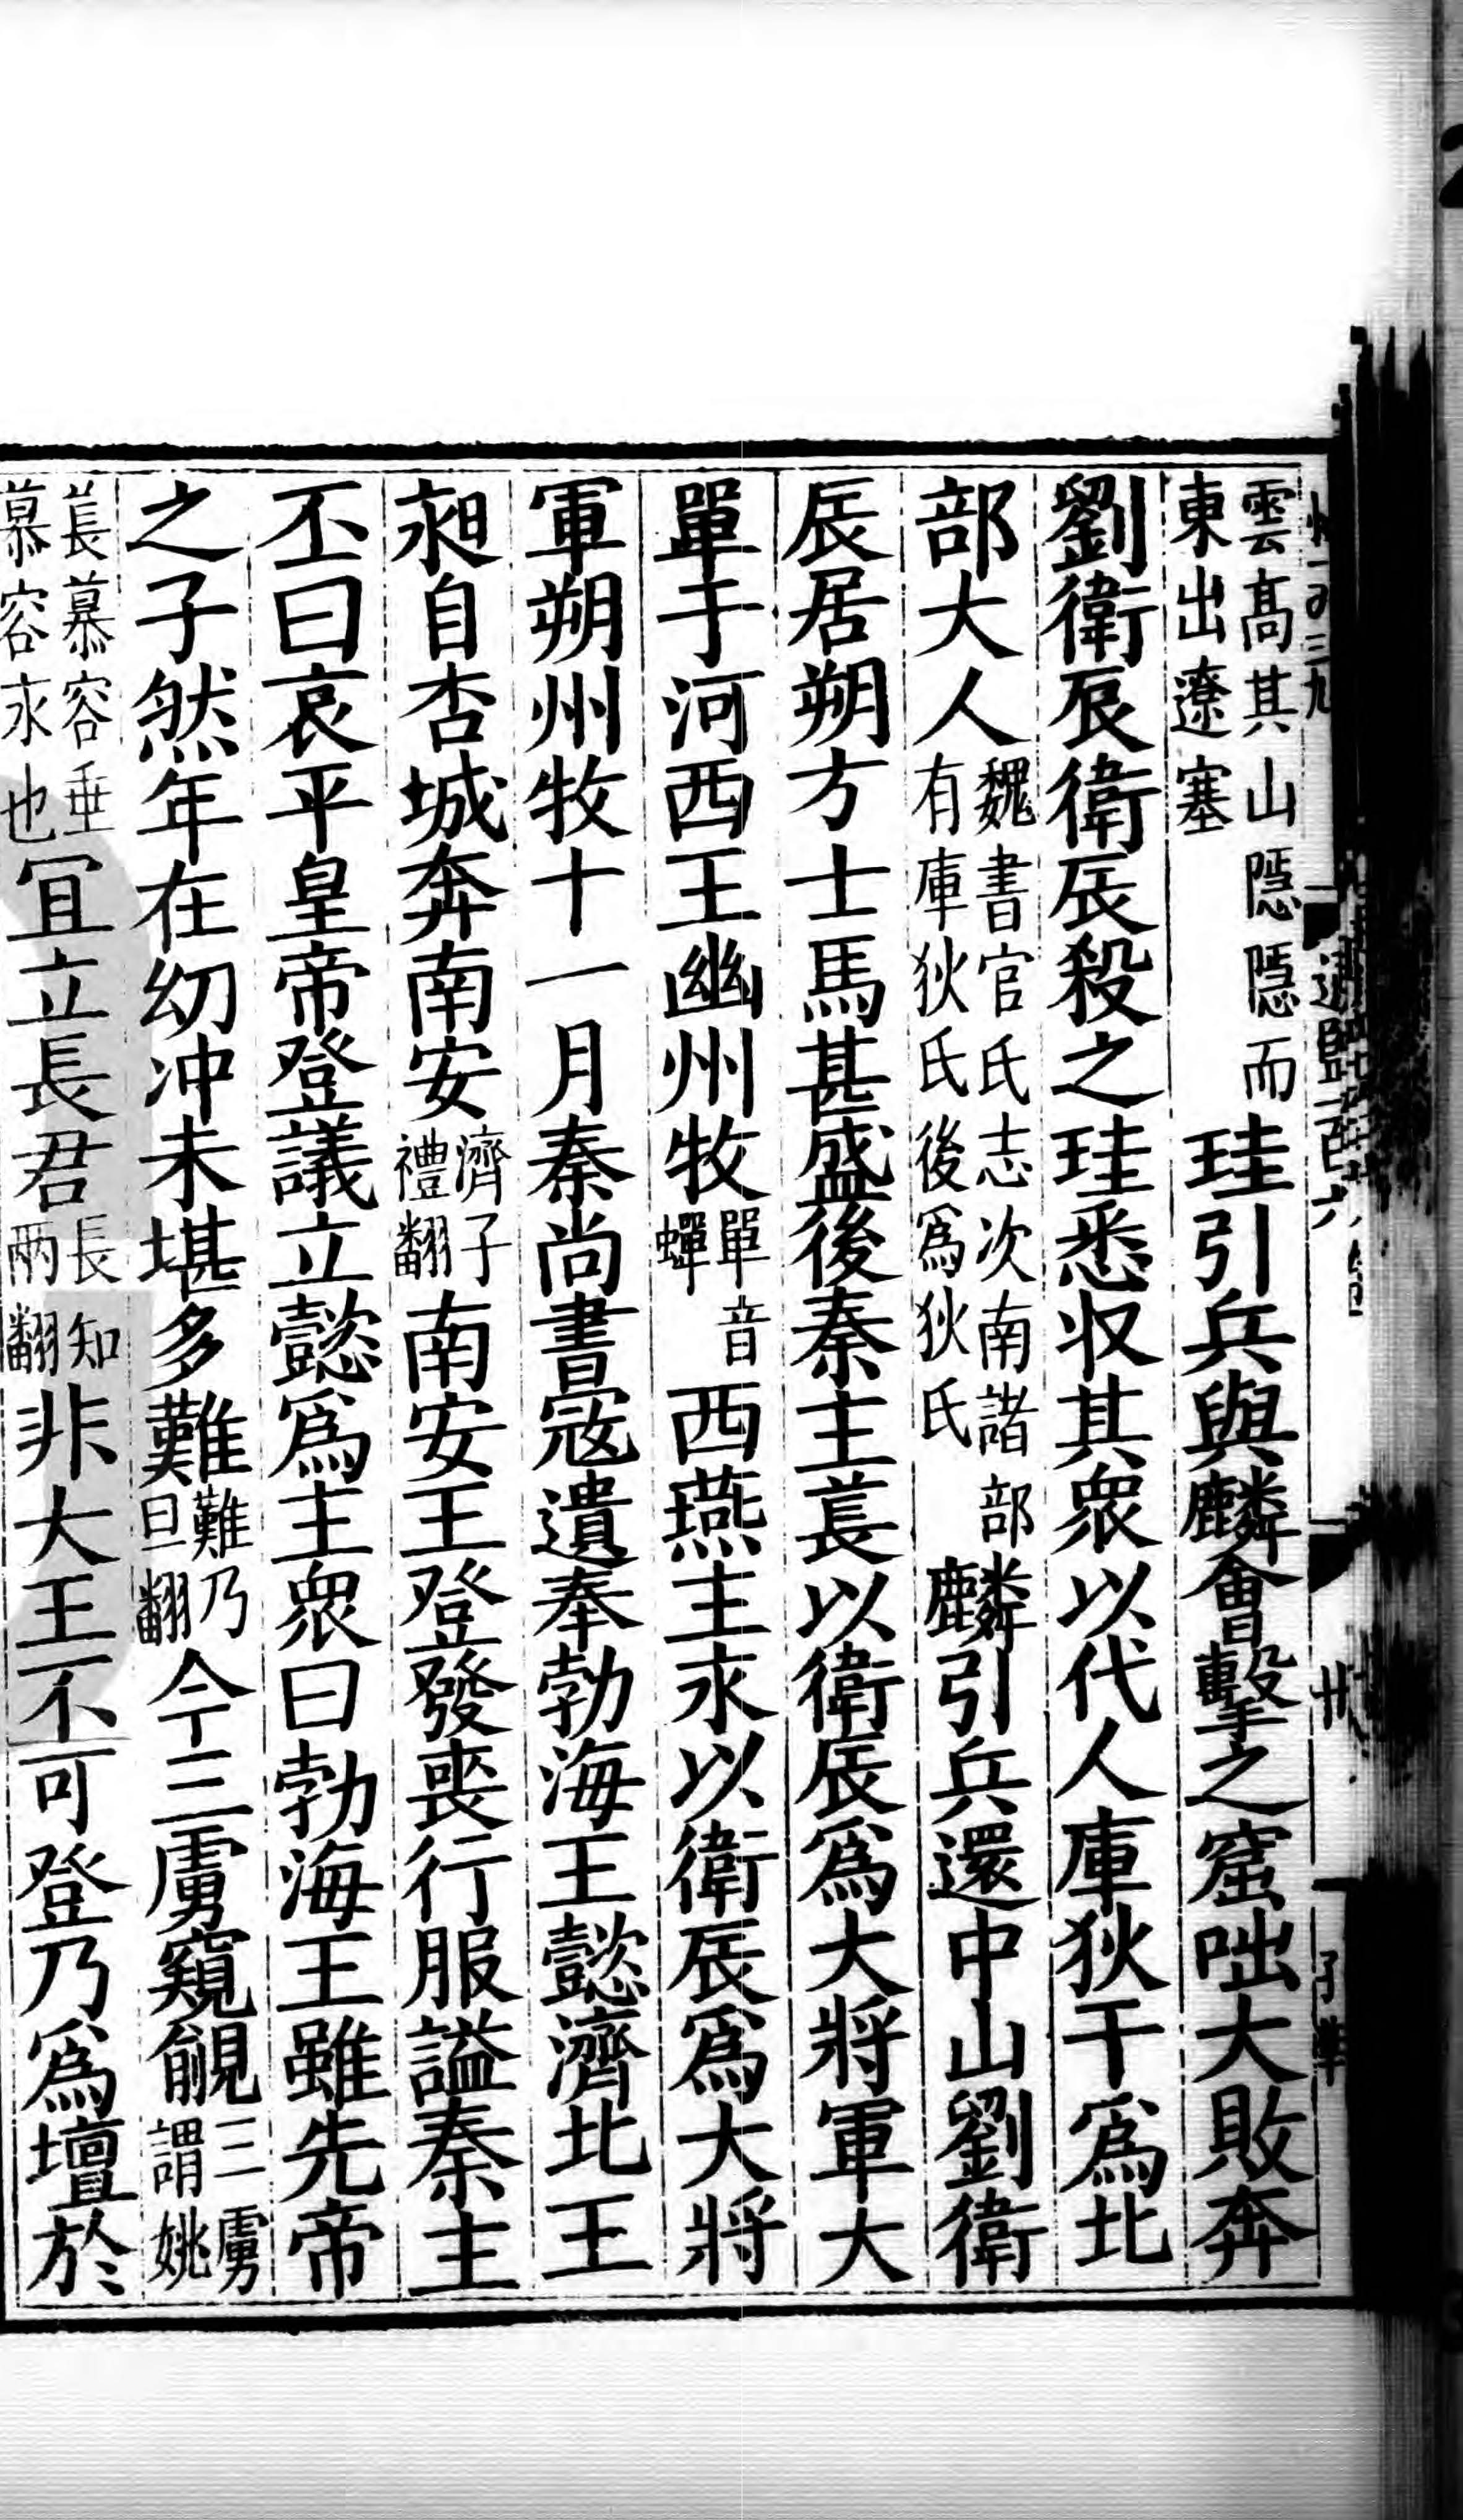 雲髙其山隱隱而東出遼塞珪引兵與麟會擊之窟咄大敗奔
劉衛辰衛辰殺之珪悉収其衆以代人庫狄干爲北
部大人魏書官氏志次南諸部有庫狄氏後爲狄氏麟引兵還中山劉衛
辰居朔方士馬甚盛後秦主萇以衛辰爲大將軍大
單于河西王幽州牧單音蟬西燕主永以衛辰爲大將
軍朔州牧十一月秦尚書寇遺奉勃海王懿濟北王
昶自杏城奔南安濟子禮翻南安王登發喪行服謚秦主
丕曰哀平皇帝登議立懿爲主衆曰勃海王雖先帝
之子然年在幼冲未堪多難難乃旦翻今三虜窺覦三虜謂姚
萇慕容垂慕容永也冝立長君長知兩翻非大王不可登乃爲壇於
通鑑一百六